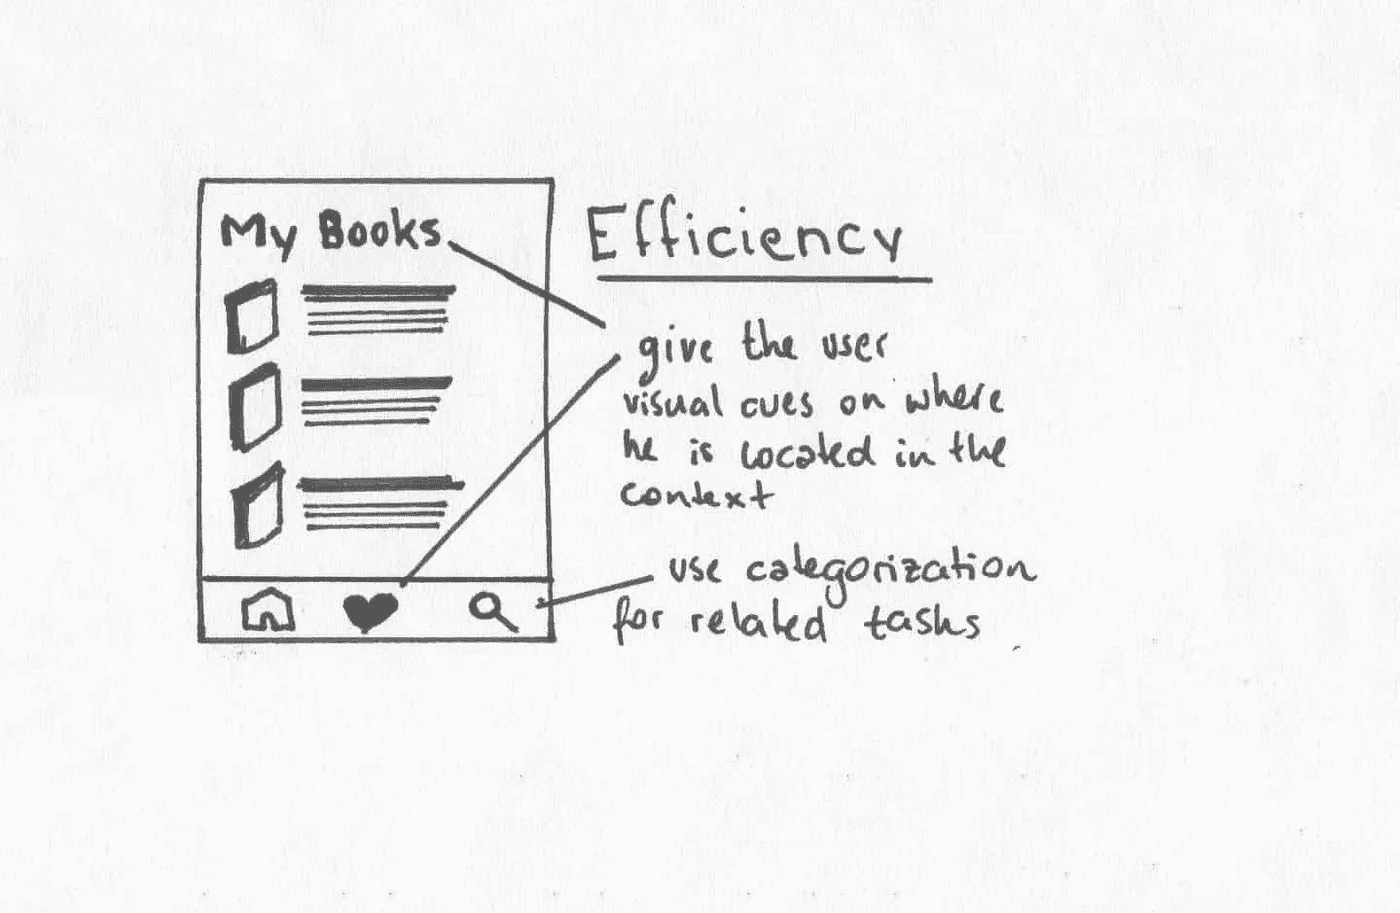 My Books
Efficiency
give the user
visual cues on where
he is located in the
context
use categorization
for related tasks